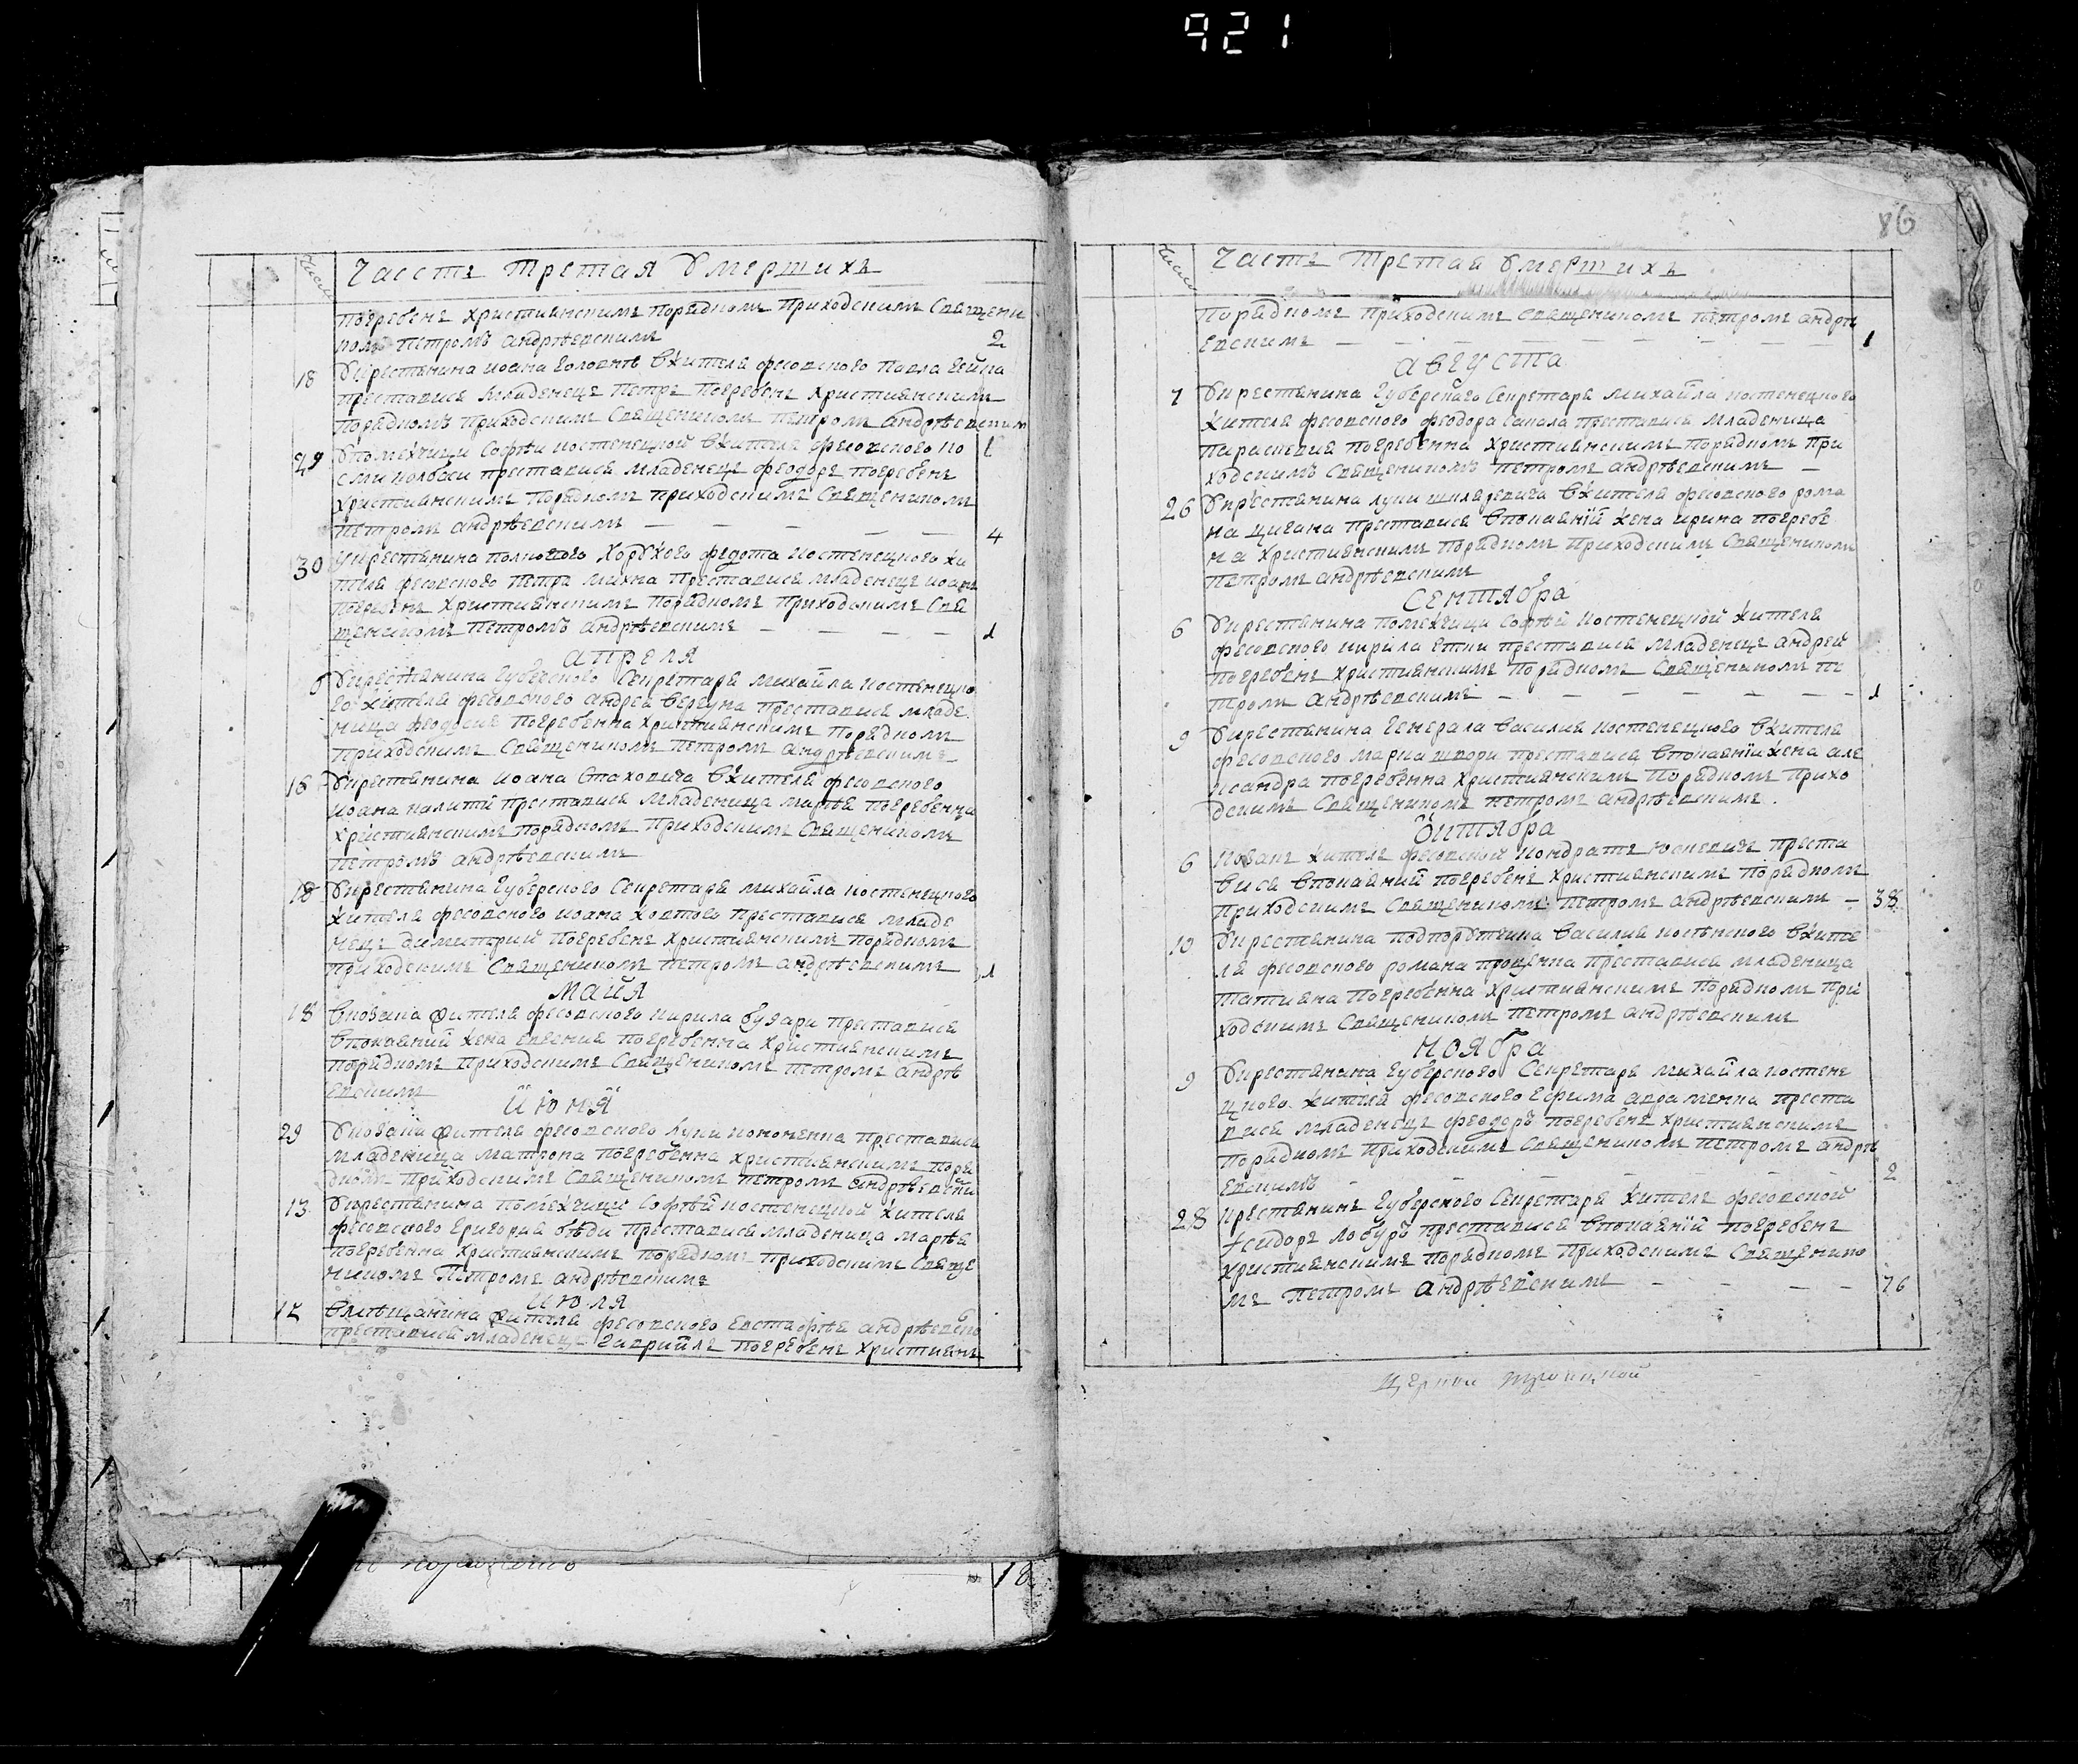 921
86
Число
Часть третая Умершихъ
погребенъ християнскимъ порядкомъ приходскимъ Священи
комъ петромъ андрѣевскимъ 2
18 Укрестянина иоана головнѣ вжителя фесовского павла
преставися младенецъ петръ погребенъ християнскимъ
порядкомъ приходскимъ Священикомъ петромъ андрѣевским
29 Упомѣхчици Софѣи костенецкой вжителя фесовского
преставися младенецъ феодоръ погребенъ
християнскимъ порядкомъ приходскимъ Священикомъ
петромъ андрѣевскимъ — — — — — 4
30 Укрестянина полкового Хоружого федота костенецкого жи
теля фесовского петра махна преставися младенецъ иоанъ
погребенъ християнскимъ порядкомъ приходскимъ Свя
щеникомъ петромъ андрѣевскимъ — — — — 1
апреля
6 Укрестянина губерского Секретаря михайла костенецко
го жителя фесовского андрея вергуна преставися младе
ница феодосия погребенна християнскимъ порядкомъ
приходскимъ Священикомъ петромъ андрѣевскимъ
16 Укрестянина иоана Стаховича вжителя фесовского
иоана калити преставися младеница марѣя погребенна
християнскимъ порядкомъ приходскимъ Священикомъ
петромъ андрѣевскимъ
18 Укрестянина губерского Секретаря михайла костенецкого
жителя фесовского иоана ховтого преставися младе
нецъ димитрий погребенъ християнскимъ порядкомъ
приходскимъ Священикомъ петромъ андрѣевскимъ 1
майя
18 Укозака жителя фесовского кирила преставися
впокаяний жена евгения погребенна християнскимъ
порядкомъ приходскимъ Священикомъ петромъ андрѣ
евскимъ
июня
29 Укозака жителя фесовского луки кононенка преставися
младеница матрона погребенна християнскимъ поря
дкомъ приходскимъ Священикомъ петромъ андрѣевски
13 Укрестянина помехчици Софѣй костенецкой жителя
фесовского григория бѣди преставися младеница марѣя
погребенна християнскимъ порядкомъ приходскимъ Свяще
никомъ петромъ андрѣевскимъ
июля
вмѣщанина жителя фесовского евстафѣя андрѣевско
преставися младенецъ гаврийлъ погребенъ християнъ
18
Число
Часть третая умершихъ
порядкомъ приходскимъ священикомъ петромъ андрѣ
евскимъ — — — — — — — 1
августа
7 Укрестянина губерского Секретаря михайла костенецкого
жителя фесовского феодора сапала преставися младеница
параскевия погребенна християнскимъ порядкомъ при
ходскимъ Священикомъ петромъ андрѣевскимъ —
26 Укрестянина луки вжителя фесовского рома
на цигана преставися впокаяний жена ирина погребе
на християнскимъ порядкомъ приходскимъ Священикомъ
петромъ андрѣевскимъ
Сентября
6 Укрестянина помехчици Софѣй костенецкой жителя
фесовского кирила преставися младенецъ андрей
погребенъ християнскимъ порядкомъ Священикомъ пе
тромъ андрѣевскимъ — — — — — — 1
9 Укрестянина генерала василия костенецкого вжителя
фесовского марка преставися впокаянии жена але
ксандра погребенна християнскимъ порядкомъ прихо
дскимъ Священикомъ петромъ андрѣевскимъ.
Октября
6 Козакъ житель фесовский кондратъ преста
вися впокаяний погребенъ християнскимъ порядкомъ
приходскимъ Священикомъ петромъ андрѣевскимъ — 38
10 Укрестянина подпорутчика василия вжите
ля фесовского романа проценка преставися младеница
татияна погребенна християнскимъ порядкомъ при
ходскимъ Священикомъ петромъ андрѣевскимъ
Ноября
9 Укрестянина губерского Секретаря михайла костене
цкого жителя фесовского ефрима авраменка преста
вися младенецъ феодоръ погребенъ християнскимъ
порядкомъ приходскимъ Священикомъ петромъ андрѣ
евскимъ — — — — — — 2
28 Крестянинъ губерского Секретаря житель фесовской
лобуръ преставися впокаяний погребенъ
християнскимъ порядкомъ приходскимъ Священико
мъ петромъ андрѣевскимъ — — — — 76